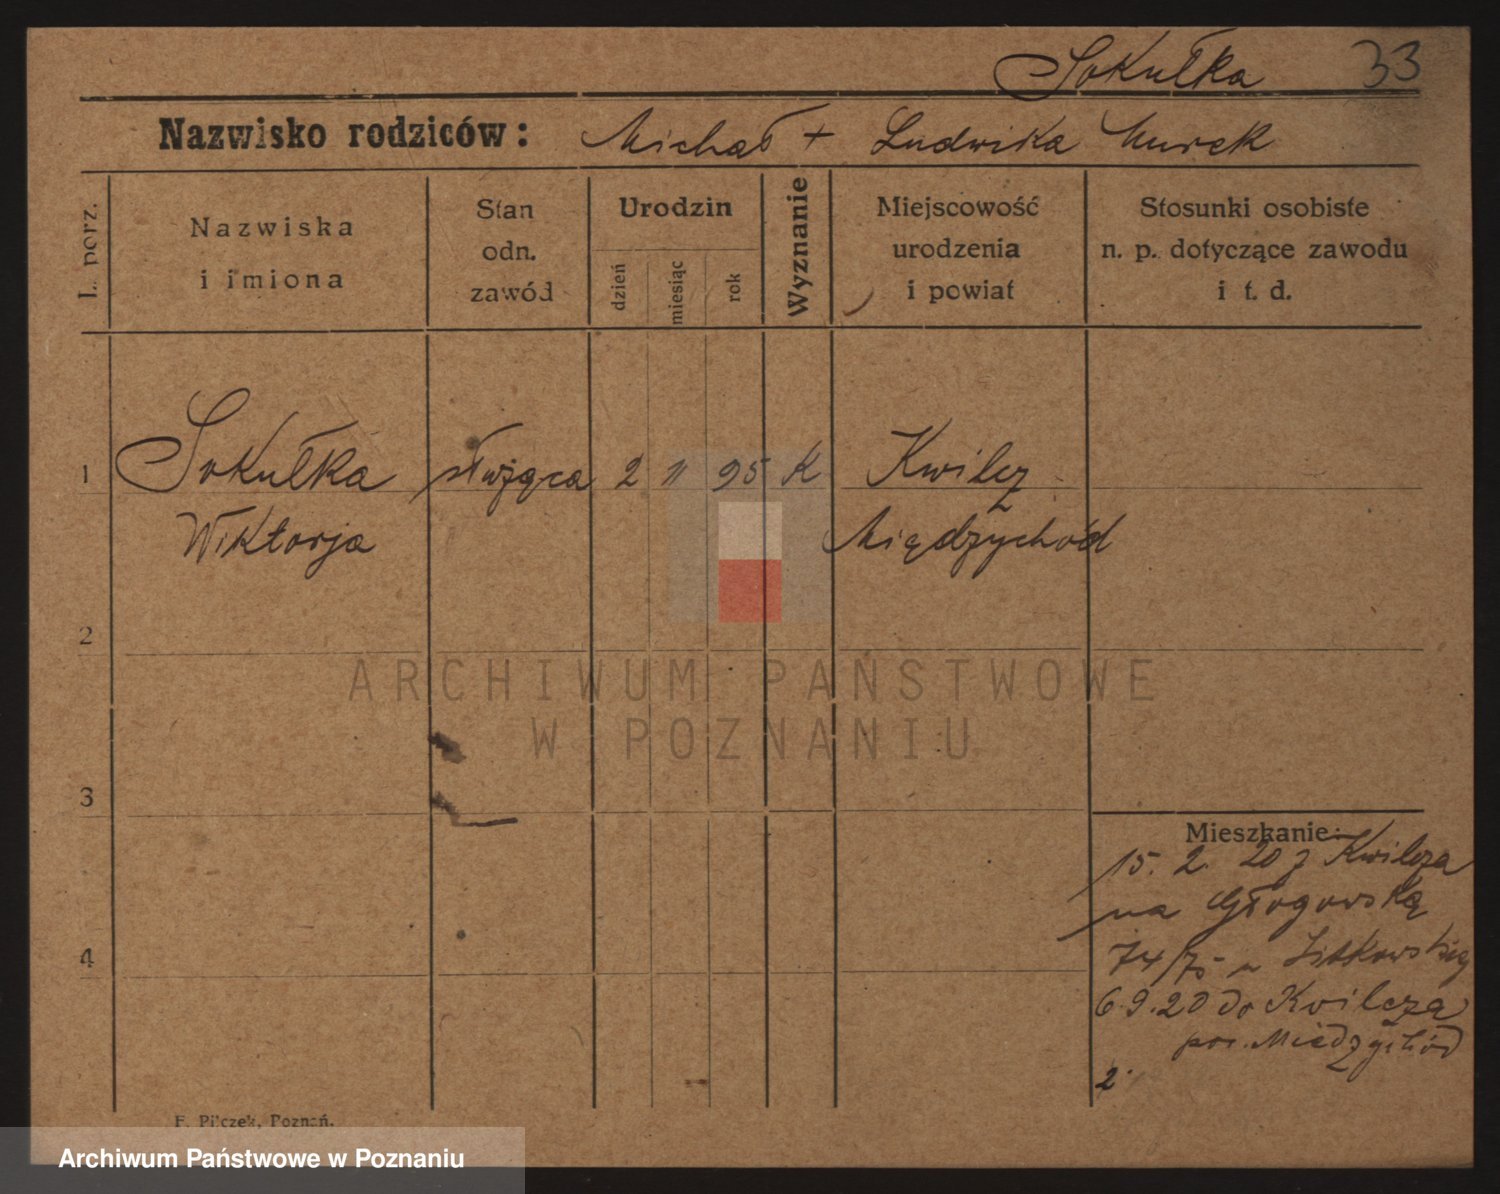 Sokułka 33
Nazwisko rodziców: Michał + Ludwika Murek
L. porz.
Nazwiska
i imiona
Stan
odn.
zawód
Urodzin
dzień
miesiąc
rok
Wyznanie
Miejscowość
urodzenia
i powiat
Stosunki osobiste
n. p. dotyczące zawodu
i t. d.
1 Sokułka służąca 2 11 95 K Kwilcz
Wiktorja Międzychód
2
3
4
Mieszkanie:
15. 2. 20 z Kwilcza
na Głogowską
74/75 u
6.9.20 do Kwilcza
pow. Międzychód
2.
F. Pilczek, Poznań.
ARCHIWUM PAŃSTWOWE
W POZNANIU
Archiwum Państwowe w Poznaniu